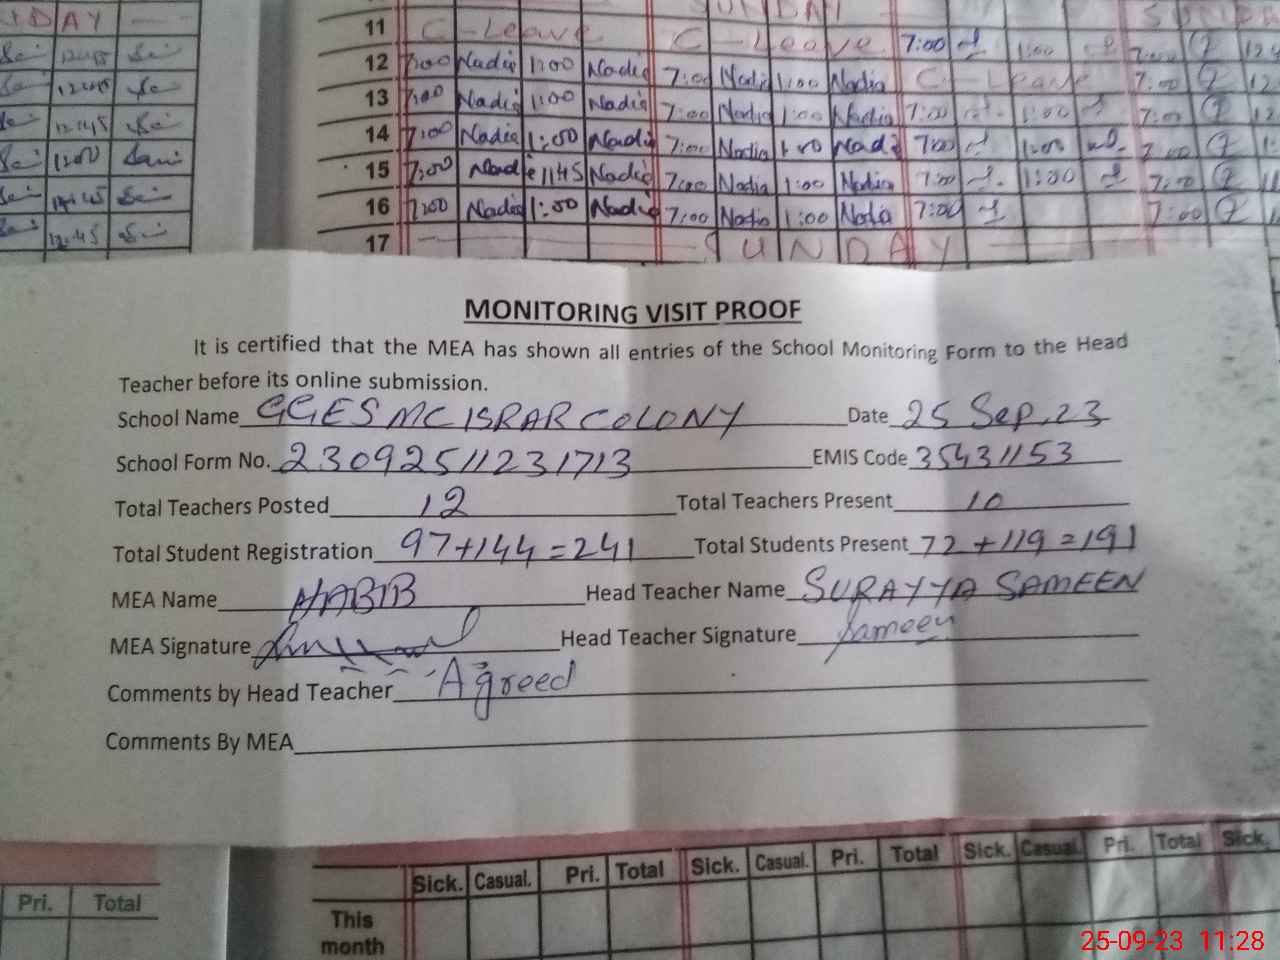 IDAY
12:45
12:45
12:45
1200
12:45
12:45
SUNDAY SUND
11 C-Leave C-Leave 7:00 1:00 7:00
12 7:00 Nadia 1:00 Nadia 7:00 Nadia 1:00 Nadia C-Leave 7:00
13 7:00 Nadia 1:00 Nadia 7:00 Nadia 1:00 Nadia 7:00 1:00 7:00
14 7:00 Nadia 1:00 Nadia 7:00 Nadia 1:00 Nadia 7:00 1:00 7:00
15 7:00 Nadia 1145 Nadia 7:00 Nadia 1:00 Nadia 7:00 1:00 7:00
16 7:00 Nadia 1:00 Nadia 7:00 Nadia 1:00 Nadia 7:00 7:00
17 SUNDAY
MONITORING VISIT PROOF
It is certified that the MEA has shown all entries of the School Monitoring Form to the Head
Teacher before its online submission.
School Name GGES MC ISRAR COLONY Date 25 Sep.23
School Form No. 23092511231713 EMIS Code 35431153
Total Teachers Posted 12 Total Teachers Present 10
Total Student Registration 97+144=241 Total Students Present 72+119=191
MEA Name HABIB Head Teacher Name SURAYYA SAMEEN
MEA Signature Head Teacher Signature Sameen
Comments by Head Teacher Agreed
Comments By MEA
Sick. Casual. Pri. Total Sick. Casual. Pri. Total Sick. Casual. Pri. Total Sick.
Pri. Total
This
month
25-09-23 11:28